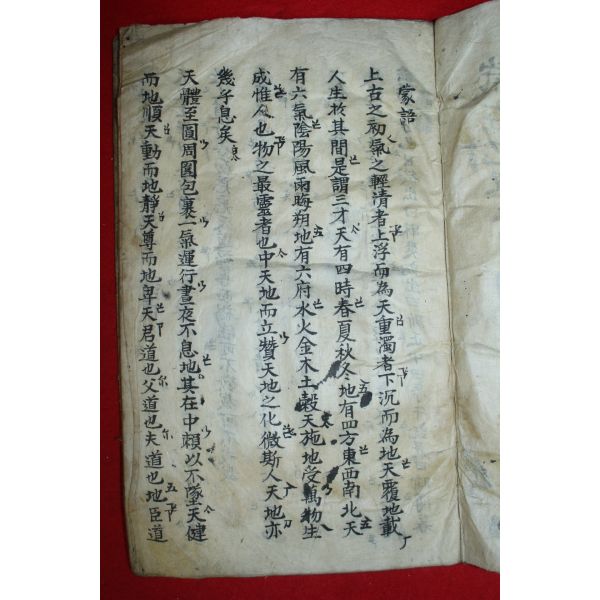 蒙語
上古之初氣之輕清者上浮而為天重濁者下沉而為地天覆地載
人生於其間是謂三才天有四時春夏秋冬地有四方東西南北天
有六氣陰陽風雨晦朔地有六府水火金木土穀天施地受萬物生
成惟人也物之最靈者也中天地而立贊天地之化微斯人天地亦
幾乎息矣
天體至圓周圍包裹一氣運行晝夜不息地其在中賴以不墜天健
而地順天動而地靜天尊而地卑天君道也父道也夫道也地臣道